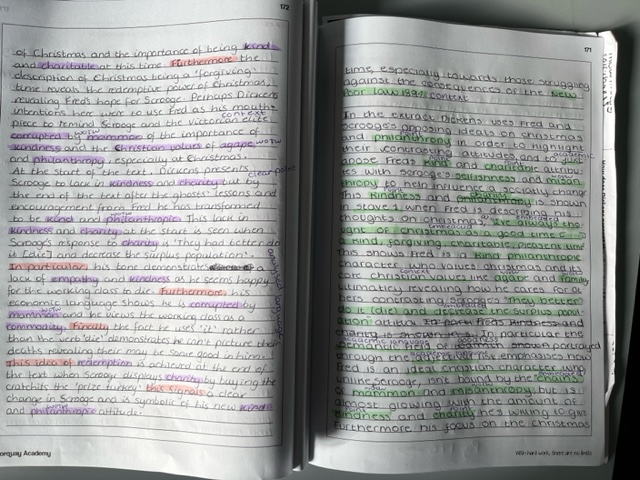 172
of Christmas and the importance of being kind
and charitable at this time. Furthermore the
description of Christmas being a 'forgiving'
time reveals the redemptive power of Christmas,
revealing Fred's hope for Scrooge. Perhaps Dickens
intentions here were to use Fred as his mouth-
context
piece to remind Scrooge and the Victorian elite
wow
corrupted by mammon of the importance of
kindness and the Christian values of agape wow
and philanthropy, especially at Christmas.
clear point
At the start of the text, Dickens presents
Scrooge to lack in kindness and charity but by
the end of the text after the ghosts' lessons and
encouragement from Fred he has transformed
to be kind and philanthropic. This lack in
kindness and charity at the start is seen when
Scrooge's response to charity is 'They had better do
it [die] and decrease the surplus population'.
In particular, his tone demonstrates a
lack of empathy and kindness as he seems happy
for the working class to die. Furthermore, his
economic language shows he is corrupted by
mammon and he views the working class as a
commodity. Finally the fact he uses 'it' rather
than the verb 'die' demonstrates he can't picture their
deaths revealing their may be some good in him.
This idea of redemption is achieved at the end of
the text when Scrooge displays charity by buying the
cratchits the 'prize turkey' this signals a clear
change in Scrooge and is symbolic of his new kind
wow
and philanthropic attitude.
orquay Academy
171
time, especially towards those struggling
against the consequences of the New
Poor law 1834 context
In the extract Dickens uses Fred and
Scrooge's opposing ideals on christmas
and philanthropy in order to highlight
academic
their attitudes, and to
pose Fred's kind and charitable
ies with Scrooge's selfishness and misan
thropy to help influence a socially
This kindness and philanthropy is shown
in stave 1 when Fred is describing his
embedded
thoughts on christmas
ught of christmas as a good time
a kind, forgiving, charitable, pleasant time'
This shows Fred is a kind philanthropic
character, who values christmas and its
context
core christian values like agape and family
ultimately revealing how he cares for ot
hers contrasting Scrooge's 'They better
do it (die) and decrease the surplus popul-
ation' attitude. Fred's kindness and
charity is shown In particular the
academic language
semantic field of shown portrayed
through the emphasises how
Fred is an ideal christian character who
unlike Scrooge, isn't bound by the chains
of mammon and misanthropy but is
almost growing with the amount of
kindness and charity he's willing to give
Furthermore his focus on the christmas
With hard work, there are no limits